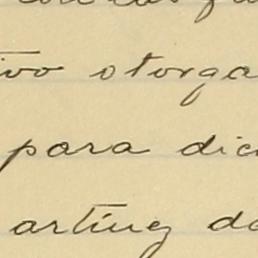 ivo otorga
para dic
artínez do